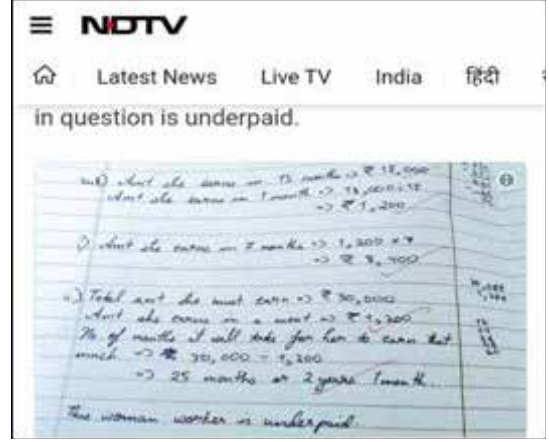 NDTV
Latest News Live TV India हिंदी
in question is underpaid.
Amt she earns in 15 months => ₹ 18,000
Amt she earns in 1 month => 18,000 ÷ 15
=> ₹ 1,200
i) Amt she earns in 7 months => 1,200 x 7
=> ₹ 8,400
ii) Total amt she must earn => ₹ 30,000
Amt she earns in a mont => ₹ 1,200
No of months it will take for her to earn that
much => 30,000 ÷ 1,200
=> 25 months or 2 years 1 month.
The woman worker is underpaid.